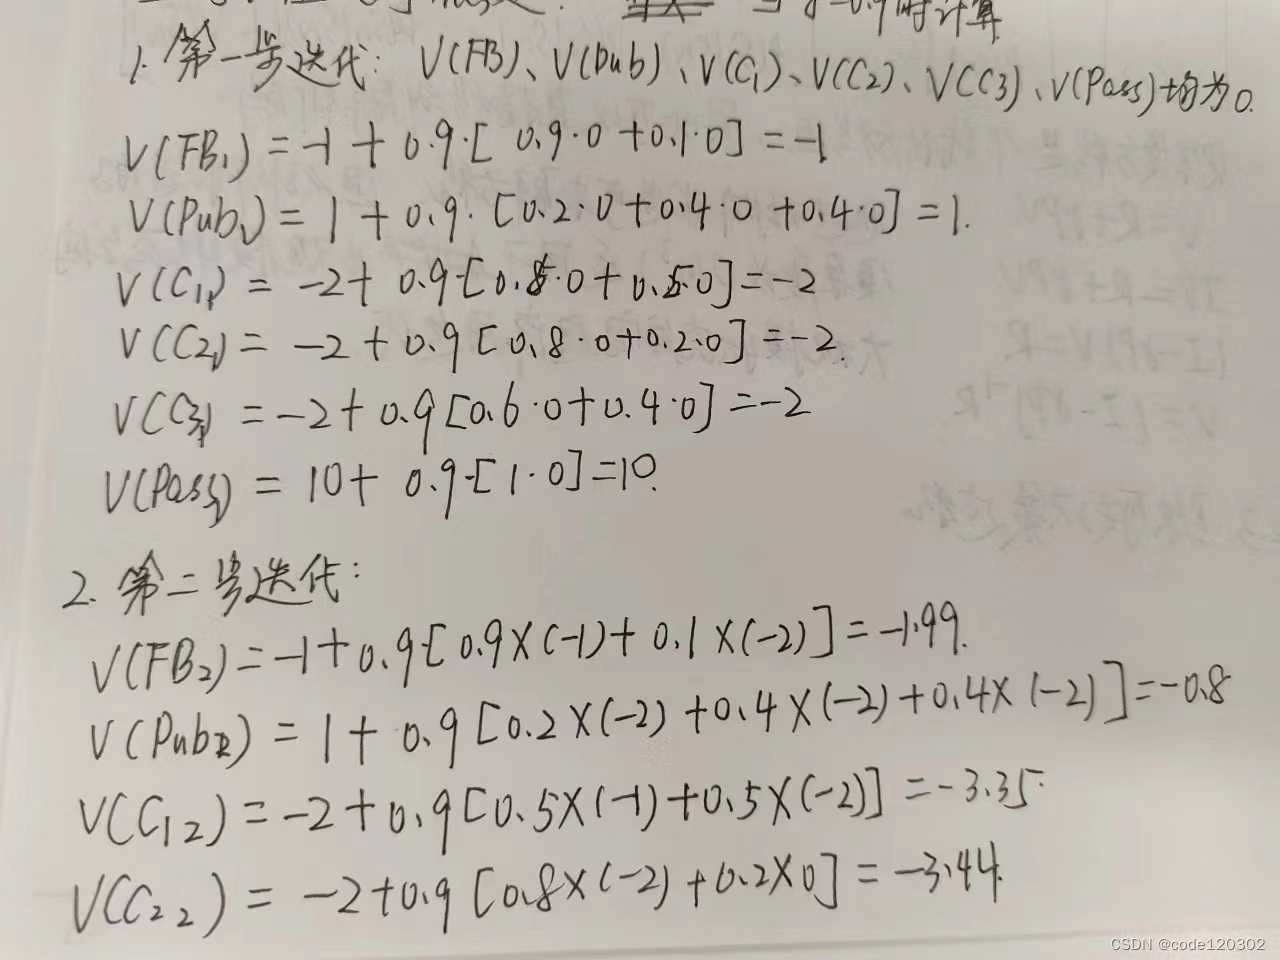 时计算
1. 第一步迭代: V(FB)、V(Pub)、V(C1)、V(C2)、V(C3)、V(Pass)均为0.
V(FB1) = -1 + 0.9·[ 0.9·0 +0.1·0] = -1
V(Pub1) = 1 + 0.9·[0.2·0+0.4·0 +0.4·0] = 1.
V(C11) = -2+ 0.9·[0.5·0+0.5·0]=-2
V(C21) = -2+0.9[0.8·0+0.2·0]=-2.
V(C31) = -2+0.9[0.6·0+0.4·0]=-2
V(Pass1) = 10+ 0.9·[1·0]=10.
2. 第二步迭代:
V(FB2)=-1+0.9·[0.9×(-1)+0.1×(-2)]=-1.99.
V(Pub2) = 1+0.9[0.2×(-2)+0.4×(-2)+0.4×(-2)]=-0.8
V(C12)=-2+0.9[0.5×(-1)+0.5×(-2)] = -3.35.
V(C22) = -2+0.9[0.8×(-2)+0.2×0] = -3.44.
CSDN @code120302